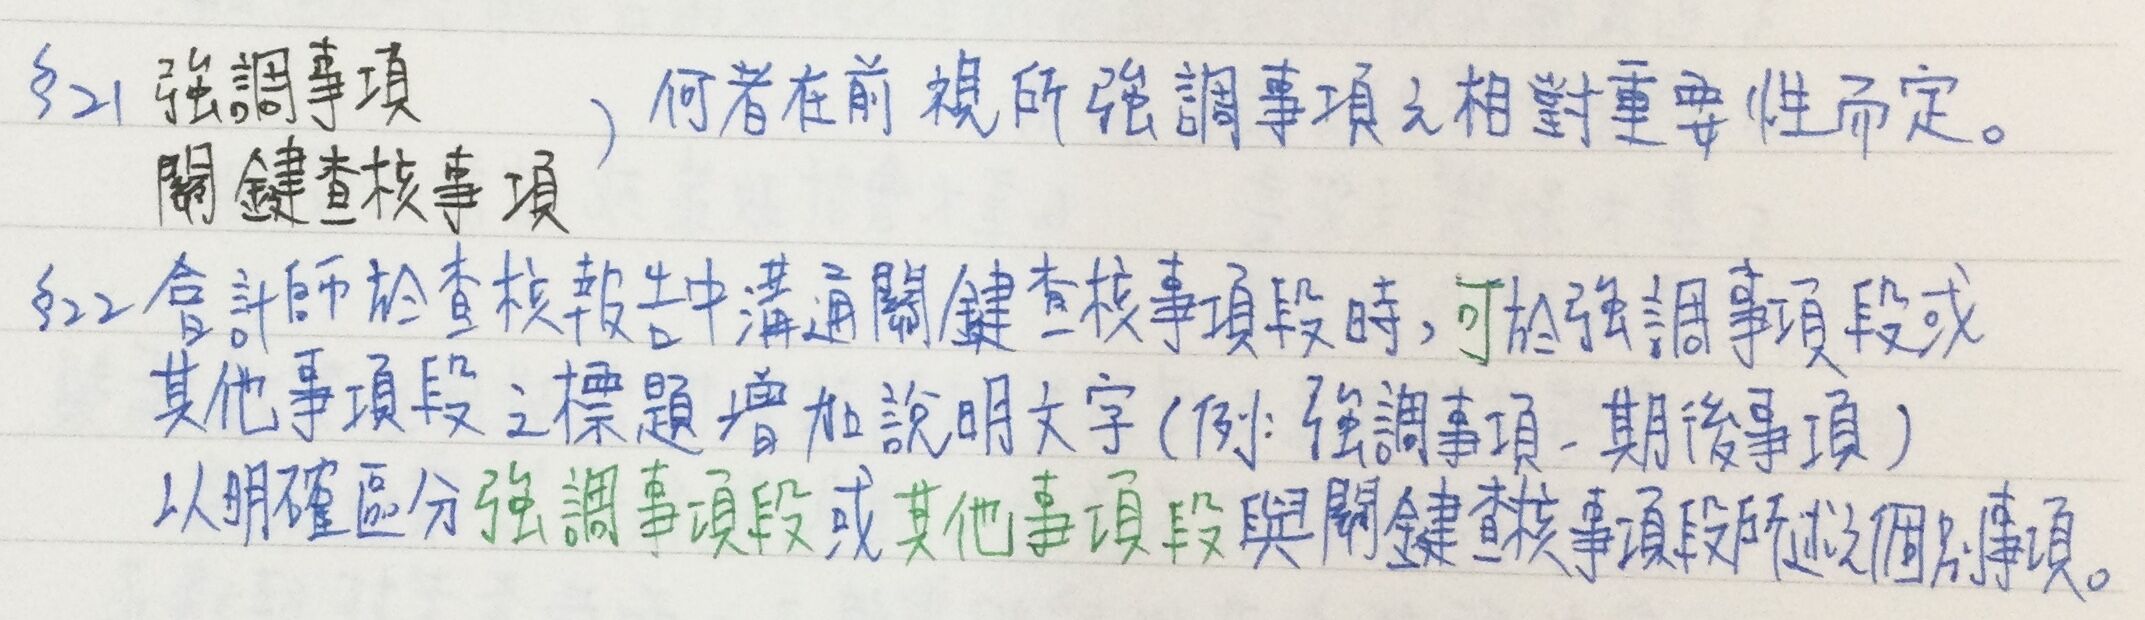 §21 強調事項
關鍵查核事項 ) 何者在前 視所強調事項之相對重要性而定。
§22 會計師於查核報告中溝通關鍵查核事項段時，可於強調事項段或
其他事項段之標題增加說明文字(例: 強調事項-期後事項)
以明確區分強調事項段或其他事項段與關鍵查核事項段所述之個別事項。